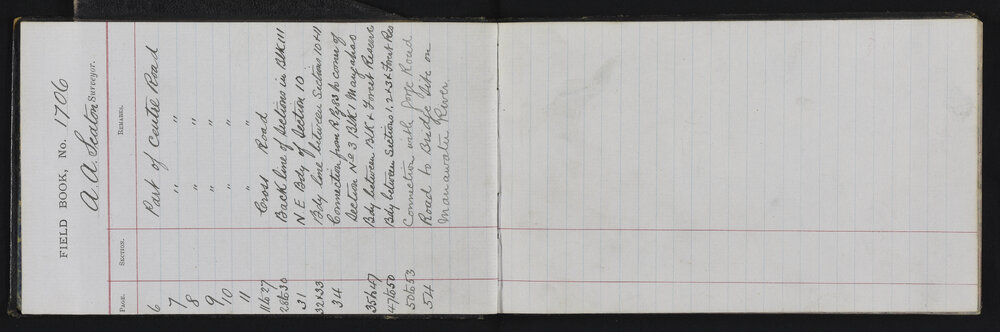 FIELD BOOK, No. 1706
A. A. Seaton Surveyor.
PAGE. SECTION. REMARKS.
6 Part of Centre Road
7 " "
8 " "
9 " "
10 " "
11 " "
11 to 27 Cross Road
28 to 30 Back line of Sections in Blk III
31 N E Bdy of Section 10
32 & 33 Bdy line between Sections 10 & 11
34 Connection from R. Pegs to corner of
Section No 3 Blk 1 Mangahao
35 to 47 Bdy between Blk & Forest Reserve
47 to 50 Bdy between Sections 1, 2 & 3 & Forest Res
50 to 53 Connection with Gorge Road
54 Road to Bridge Site on
Manawatu River.